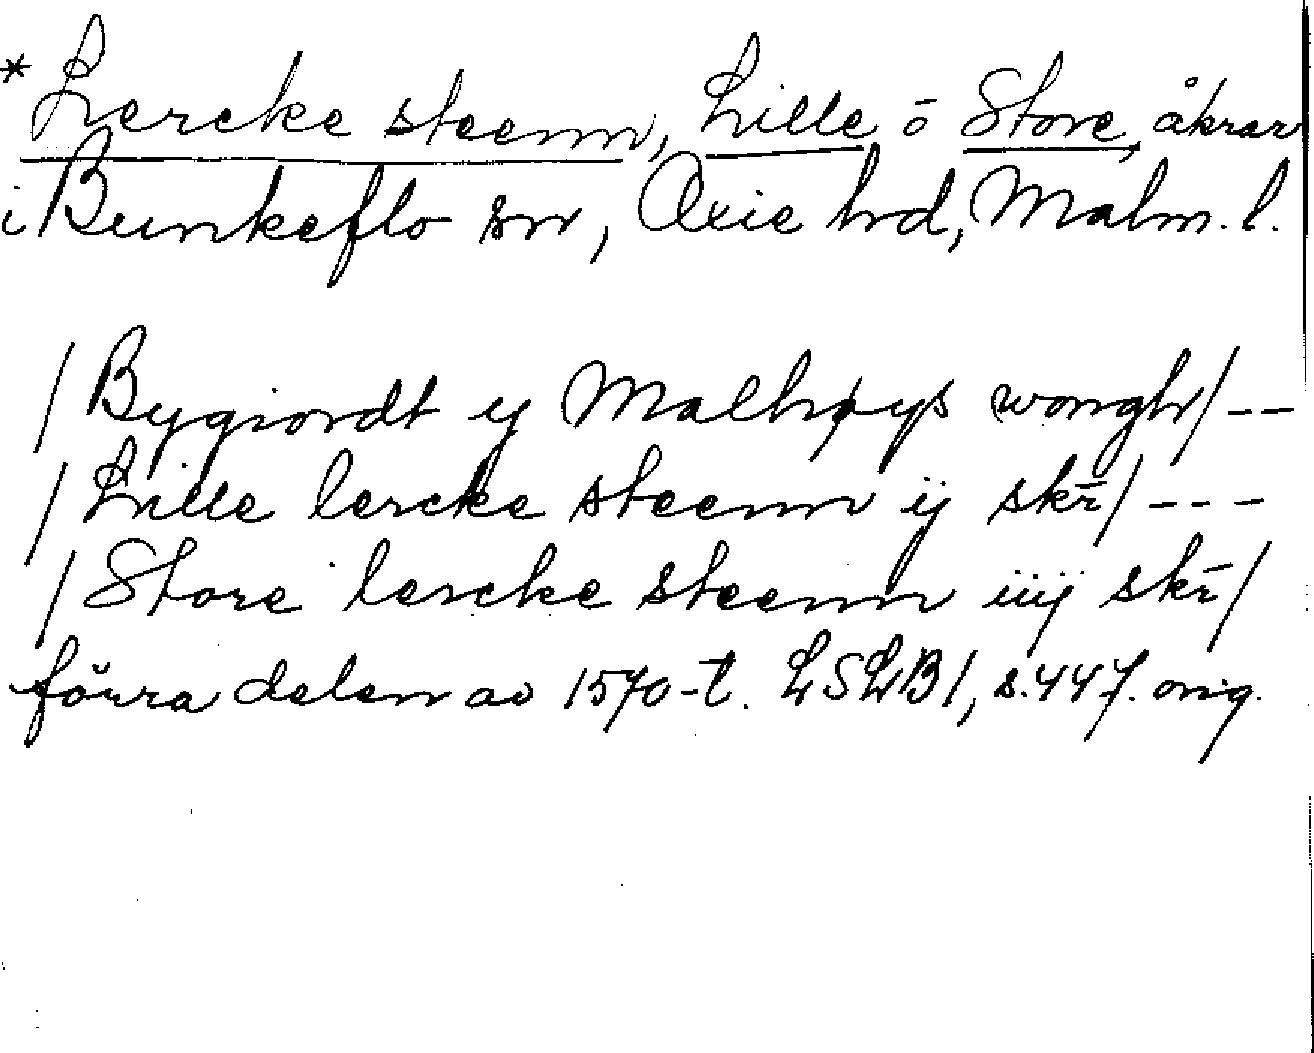 * Lercke steenn, Lille ō Store, åkrar
i Bunkeflo sn, Oxie hd, Malm. l.
/ Bygiordt ij Malhøys wongh / --
/ Lille lercke steenn ij skr̄ / ---
/ Store lercke steenn iiij skr̄ /
förra delen av 1570-t. LSLB 1, s. 447. orig.